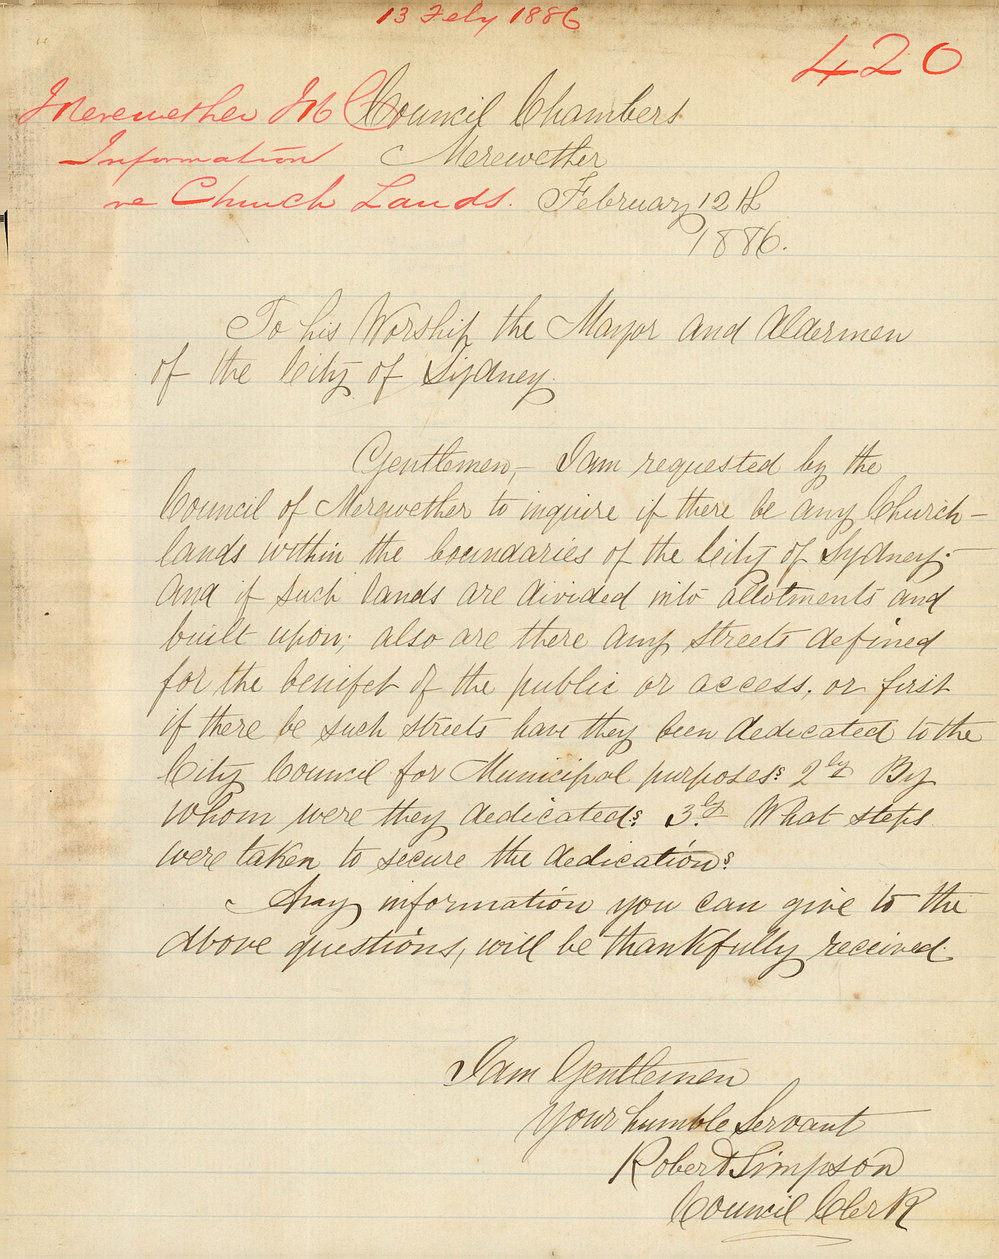 13 Feby 1886
420
Merewether M C
Information
re Church Lands.
Council Chambers
Merewether
February 12th
1886.
To his Worship the Mayor and Aldermen
of the City of Sydney.
Gentlemen,- I am requested by the
Council of Merewether to inquire if there be any Church-
lands within the boundaries of the City of Sydney.-
And if such lands are divided into allotments and
built upon; also are there any streets defined
for the benifet of the public or access, or first
if there be such streets have they been dedicated to the
City Council for Municipal purposes? 2ly By
whom were they dedicated? 3.ly What steps
were taken to secure the dedication?
Any information you can give to the
above questions, will be thankfully received.
I am Gentlemen
Your humble Servant
Robert Simpson
Council Clerk